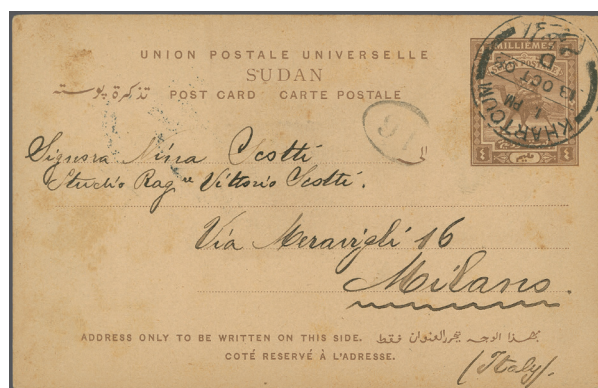 UNION POSTALE UNIVERSELLE
SUDAN
تذكرة بوستـه POST CARD CARTE POSTALE
MILLIÈMES
KHARTOUM
1 PM
13 OCT
16
Signora Nina Scotti
Studio Rag.re Vittorio Scotti.
Via Meravigli 16
Milano.
ADDRESS ONLY TO BE WRITTEN ON THIS SIDE. بهذا الوجه يحرر العنوان فقط
COTÉ RESERVÉ À L'ADRESSE.
(Italy).